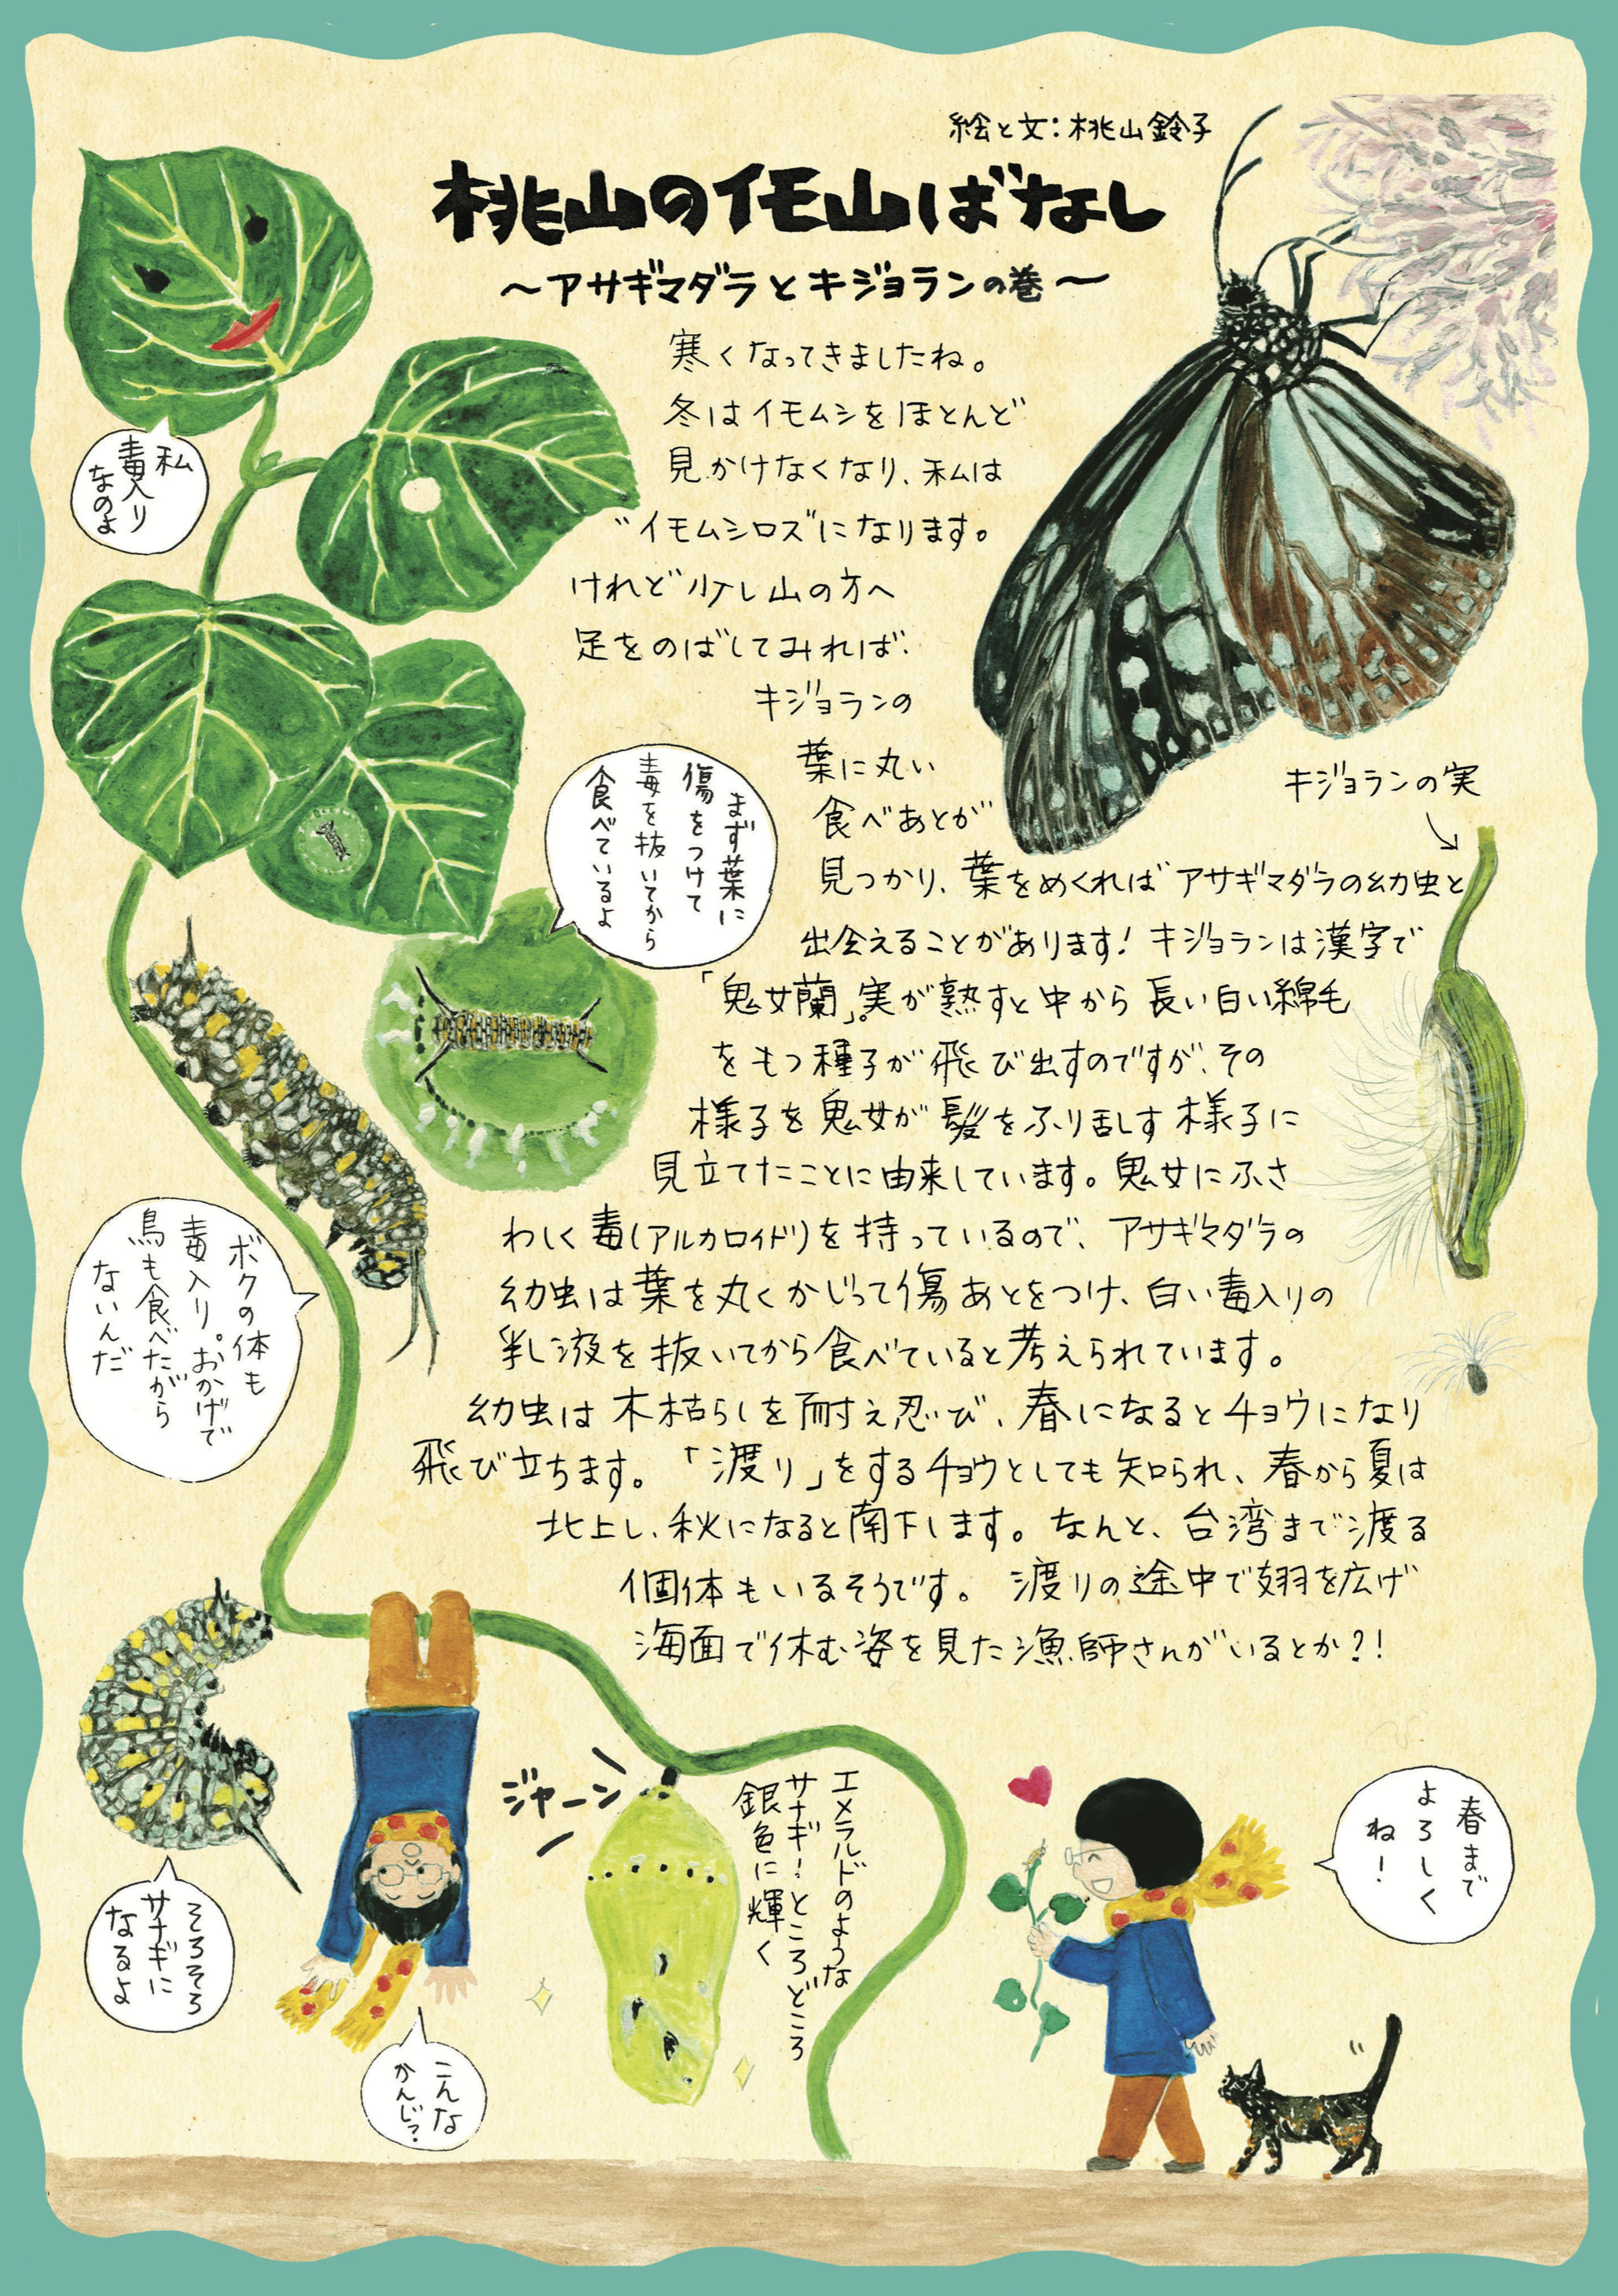 絵と文:桃山鈴子
桃山のイモ山ばなし
～アサギマダラとキジョランの巻～
寒くなってきましたね。
冬はイモムシをほとんど
見かけなくなり、私は
"イモムシロス"になります。
けれど少し山の方へ
足をのばしてみれば、
キジョランの
葉に丸い
食べあとが
見つかり、葉をめくれば アサギマダラの幼虫と
出会えることがあります! キジョランは漢字で
「鬼女蘭」。実が熟すと中から長い白い綿毛
をもつ種子が飛び出すのですが、その
様子を鬼女が髪をふり乱す様子に
見立てたことに由来しています。鬼女にふさ
わしく毒(アルカロイド)を持っているので、アサギマダラの
幼虫は葉を丸くかじって傷あとをつけ、白い毒入りの
乳液を抜いてから食べていると考えられています。
幼虫は木枯らしを耐え忍び、春になるとチョウになり
飛び立ちます。「渡り」をするチョウとしても知られ、春から夏は
北上し、秋になると南下します。なんと、台湾まで渡る
個体もいるそうです。渡りの途中で翅を広げ
海面で休む姿を見た漁師さんがいるとか?!
私
毒入り
なのよ
まず葉に
傷をつけて
毒を抜いてから
食べているよ
キジョランの実
ボクの体も
毒入り。おかげで
鳥も食べたがら
ないんだ
そろそろ
サナギに
なるよ
こんな
かんじ?
ジャーン
エメラルドのような
サナギ!ところどころ
銀色に輝く
春まで
よろしく
ね!